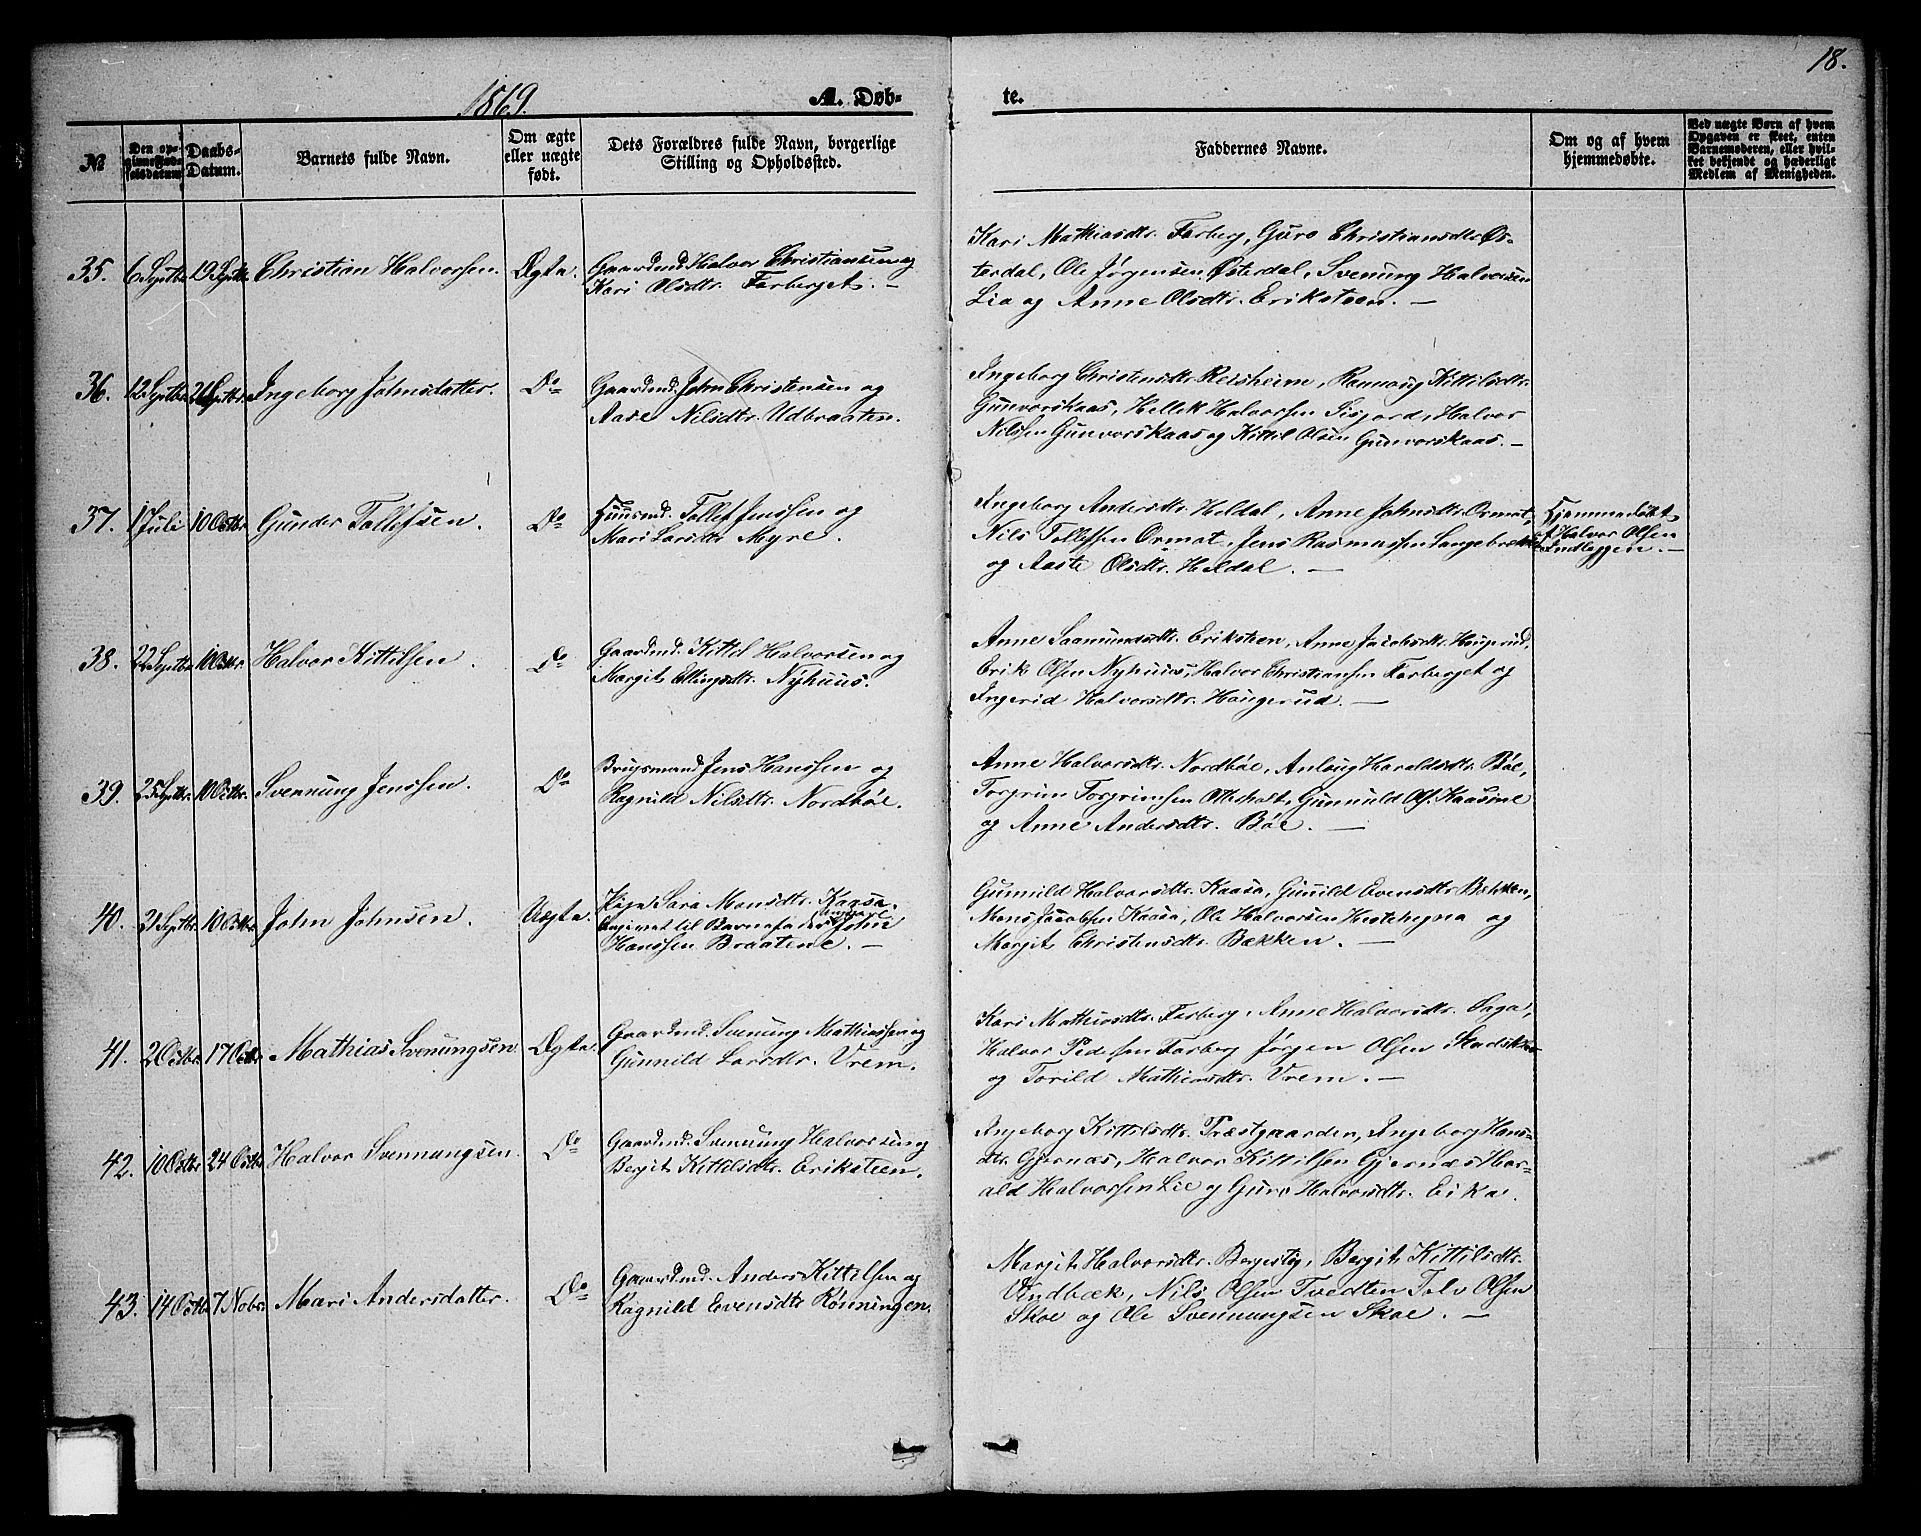 18.
1869.
A. Døb-
te.
№
Den opgivne Fødselsdatum
Daabs-Datum.
Barnets fulde Navn.
Om ægte eller uægte født.
Dets Forældres fulde Navn, borgerlige Stilling og Opholdssted.
Faddernes Navne.
Om og af hvem hjemmedøbte.
Ved uægte Børn af hvem Opgaven er skeet, enten Barnemoderen, eller hvilket bekjendt og hæderligt Medlem af Menigheden.
35. 6 Septbr 19 Septbr Christian Halvorsen. Ægte.
Gaardmd. Halvor Christiansen og
Kari Olsdtr. Farberget. —
Kari Mathiasdtr. Farberg, Guro Christiansdtr Øs-
terdal, Ole Jørgensen Østerdal, Svenung Halvorsen
Lia og Anne Olsdtr. Eriksteen. —
36. 12 Septbr Septbr. Ingeborg Johnsdatter. Do
Gaardmd. John Christensen og
Aase Nilsdtr. Udbraaten.
Ingeborg Christensdtr. Reisheim, Rannoug Kittilsdtr.
Gunvorskaas, Hellek Halvorsen Sisjord, Halvor
Nilsen Gunvorskaas og Kittil Olsen Gunvorskaas. —
37. 1 Juli 10 Octbr. Gunder Tollefsen. Do
Huusmd. Tollef Jenssen og
Mari Larsdtr Myre.
Ingeborg Andersdtr. Heldal, Anne Johnsdtr. Ormat,
Nils Tollefsen Ormat, Jens Rasmussen Langebræk
og Aaste Olsdtr. Heldal. —
Hjemmedøbt
af Halvor Olsen
Indleggen. —
38. 22 Septbr 10 Octbr. Halvor Kittilsen. Do
Gaardmd. Kittil Halvorsen og
Margit Ellingsdtr. Nyhuus.
Anne Saamundsdtr. Eriksteen, Anne Jacobsdtr. Haugerud,
Erik Olsen Nyhuus, Halvor Christiansen Farberget og
Ingerid Halvorsdtr. Haugerud. —
39. 25 Septbr. 10 Octbr. Svennung Jenssen. Do
Brugsmand Jens Hanssen og
Ragnild Nilsdtr. Nordbøe.
Anne Halvorsdtr. Nordbøe, Anloug Haraldsdtr. Bøe,
Torgrim Torgrimsen Otteholt, Gunnuld Ols. Kaasine
og Anne Andersdtr. Bøe. —
40. Septbr. 10 Octbr John Johnsen. Uægte.
Pige Sara Monsdtr. Kaasa.
Angivet til Barnefader Ungkarl John
Hanssen Braatene. —
Gunnild Halvorsdtr. Kaasa, Gunild Evensdtr. Bækken,
Mons Jacobsen Kaasa, Ole Halvorsen Hestehegna og
Margit Christensdtr. Bækken. —
41. 2 Octbr. 17 Octbr. Mathias Svenungsen. Ægte.
Gaardmd. Svenung Mathiassen og
Gunnild Larsdtr. Vrem.
Kari Mathiasdtr. Farberg, Anne Halvorsdtr. Saga,
Halvor Pedersen Farberg Jørgen Olsen
og Torild Mathiasdtr. Vrem. —
42. 10 Octbr. 24 Octbr. Halvor Svennungsen. Do
Gaardmd. Svenung Halvorsen og
Bergit Kittilsdtr. Eriksteen.
Ingeborg Kittilsdtr. Præstgaarden, Ingeborg Hans-
dtr. Gjernæs, Halvor Kittilsen Gjernæs Har-
ald Halvorsen Lie og Guro Halvorsdtr. Eika.
43. 14 Octbr 7. Nobr. Mari Andersdatter. Do
Gaardmd. Anders Kittilsen og
Ragnild Evensdtr Rønningen.
Margit Halvorsdtr. Bergestig, Bergit Kittilsdtr.
Vindbæk, Nils Olsen Tvedten Tolv Olsen
Skoe og Ole Svennungsen Skoe. —